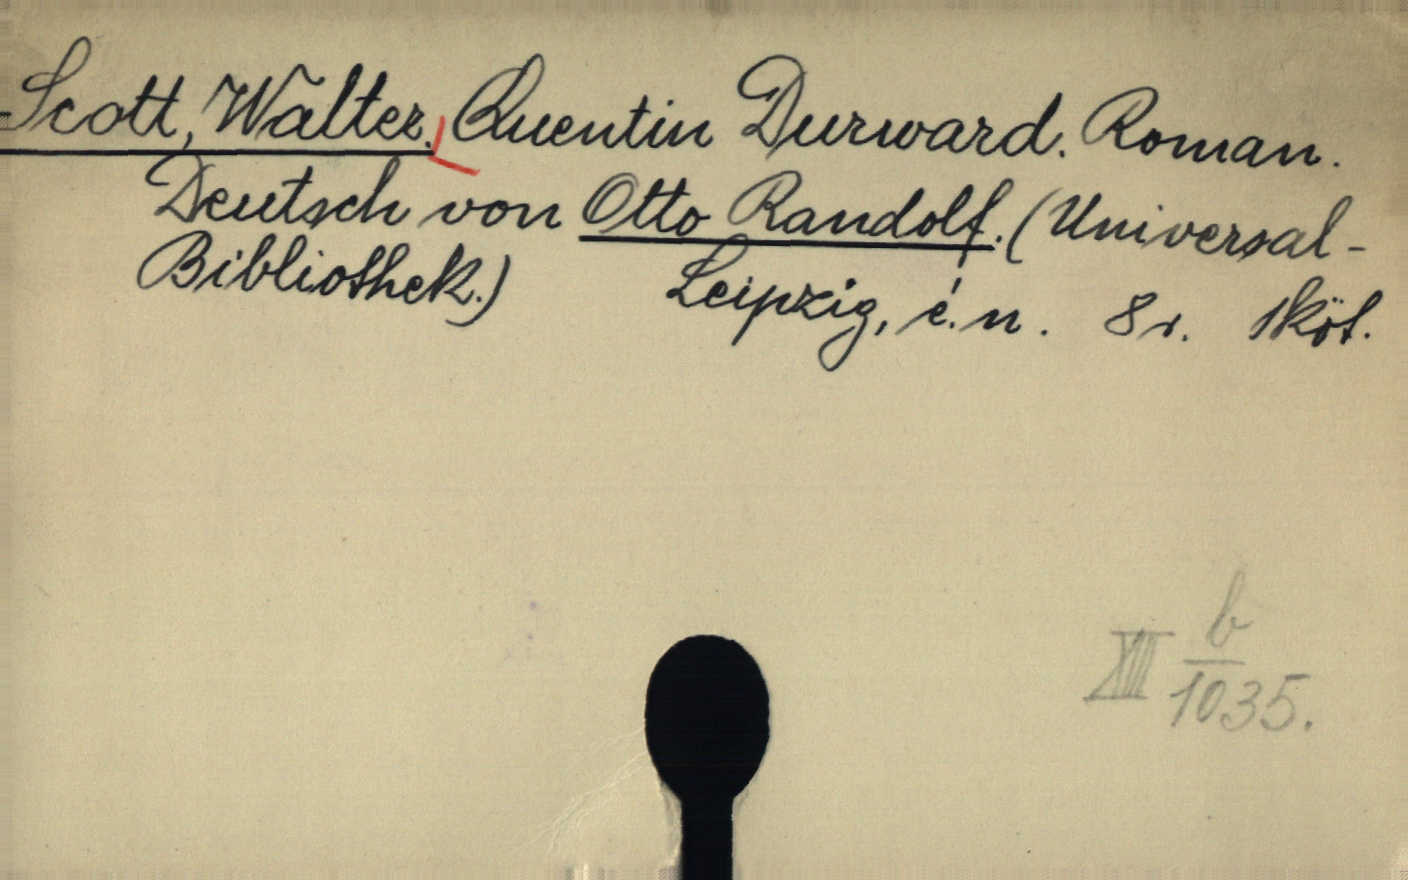 Scott, Walter. Quentin Durward. Roman.
Deutsch von Otto Randolf. (Universal-
Bibliothek.) Leipzig, é. n. 8r. 1köt.
XIII b
1035.